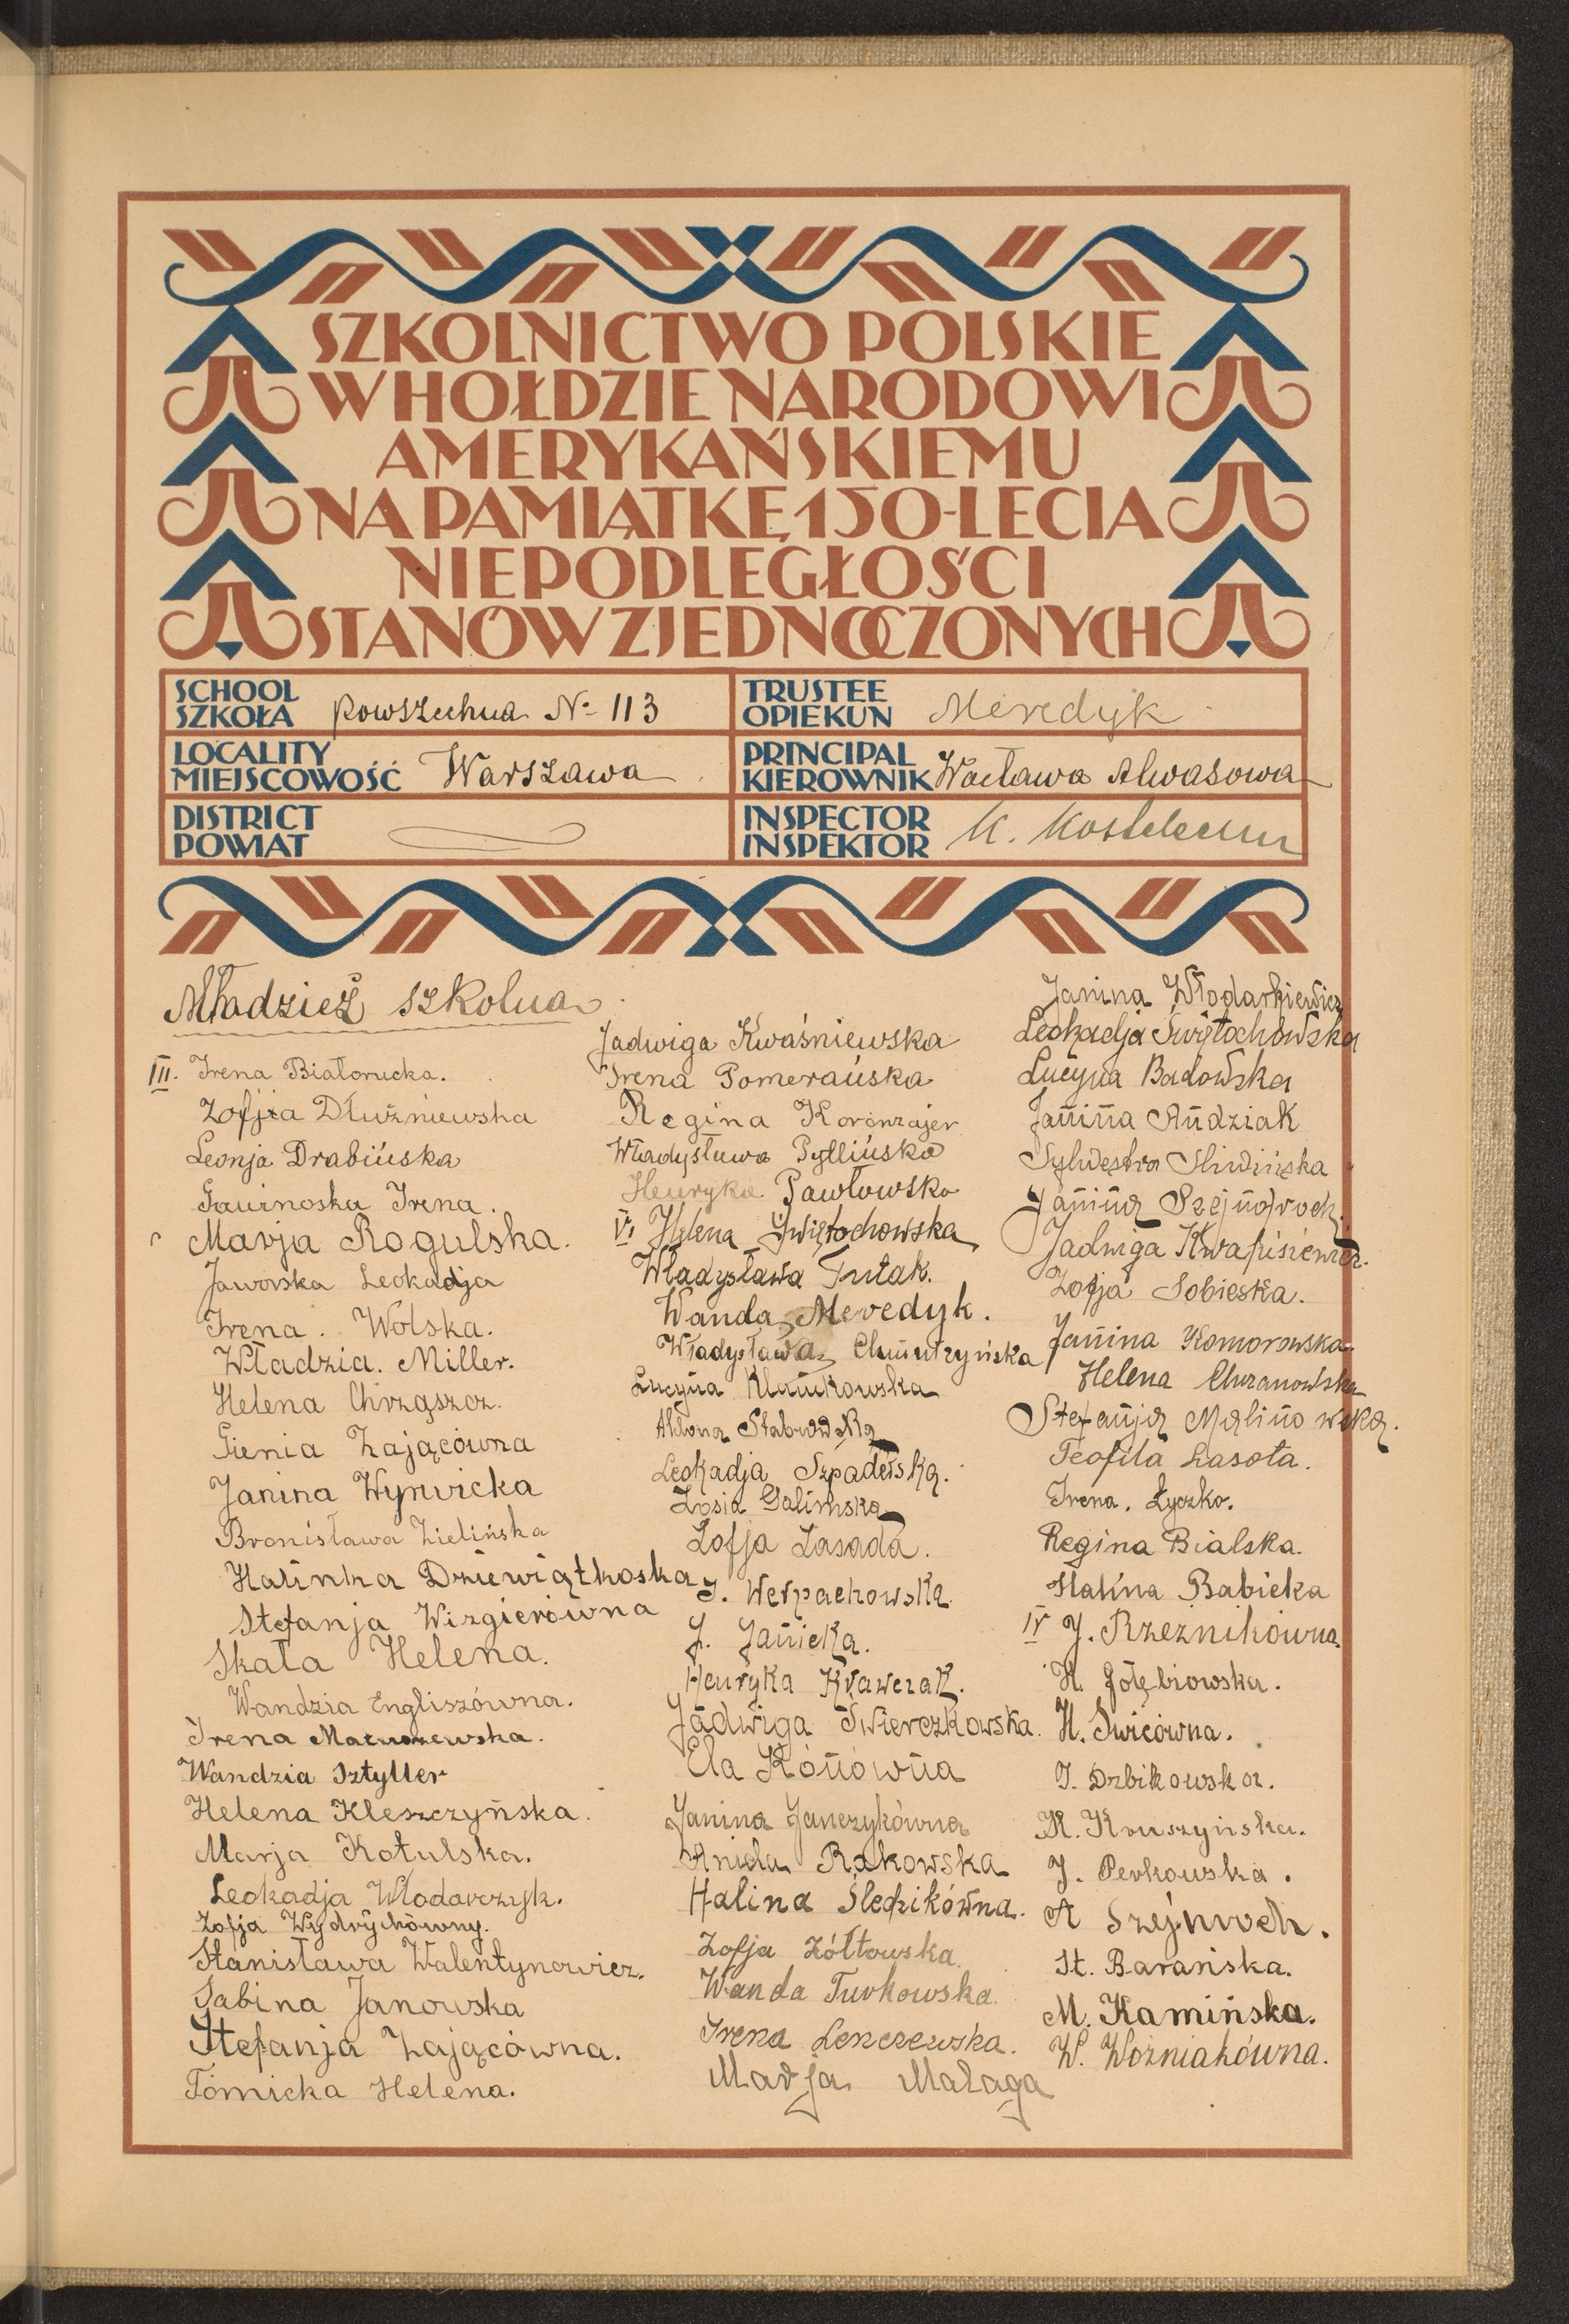 SZKOLNICTWO POLSKIE
W HOŁDZIE NARODOWI
AMERYKAŃSKIEMU
NA PAMIĄTKĘ 150-LECIA
NIEPODLEGŁOŚCI
STANÓW ZJEDNOCZONYCH
SCHOOL
SZKOŁA powszechna № 113
TRUSTEE
OPIEKUN Meredyk
LOCALITY
MIEJSCOWOŚĆ Warszawa
PRINCIPAL
KIEROWNIK Wacława Alwasowa
DISTRICT
POWIAT
INSPECTOR
INSPEKTOR K.
Młodzież szkolna
III. Irena Białorucka.
Zofja Dłużniewska
Leonja Drabińska
Irena.
Marja Rogulska.
Jaworska Leokadja
Irena. Wolska.
Władzia. Miller.
Helena Chrząszcz.
Gienia Zającówna
Janina Wyrwicka
Bronisława Zielińska
Halinka Dziewiątkoska
Stefanja Wizgierówna
Skała Helena.
Wandzia Engliszówna.
Irena Matuszewska.
Wandzia Sztyller
Helena Kleszczyńska.
Marja Kotulska.
Leokadja Włodarczyk.
Zofja Wydrychówny.
Stanisława Walentynowicz.
Sabina Janowska
Stefanja Zającówna.
Tomicka Helena.
Jadwiga Kwaśniewska
Irena Pomerańska
Regina Koronzajer
Władysława Pyllińska
Henryka Pawłowska
VI Helena Świętochowska
Władysława Tutak.
Wanda Meredyk.
Władysława
Lucyna Klamkowska
Aldona Stabrowska
Leokadja Szpadelska.
Zosia Galimska
Zofja Lasada.
J. Werpachowska
J. Janicka.
Henryka Krawczak.
Jadwiga Świerczkowska.
Ela Konówna
Janina Janczykówna
Aniela Rakowska
Halina Śledzikówna.
Zofja Żółtowska.
Wanda Turkowska.
Irena Lenczewska.
Marja Małaga
Janina Włodarkiewicz
Leokadja Świętochowska
Lucyna Badowska
Janina Andziak
Sylwestra Śliwińska
Janina Szejnoroch.
Jadwiga Kwapisiewicz.
Zofja Sobieska.
Janina Komorowska
Helena Chrzanowska
Stefanja Malinowska.
Teofila Lasota.
Irena. Łyczko.
Regina Bialska.
Halina Babicka
IV J. Rzeznikówna
H. Gołębiowska.
H. Świcówna.
J. Dzbikowska.
K. Kruszyńska.
J. Perkowska.
A Szejnroch.
St. Barańska.
M. Kamińska.
W. Woźniakówna.